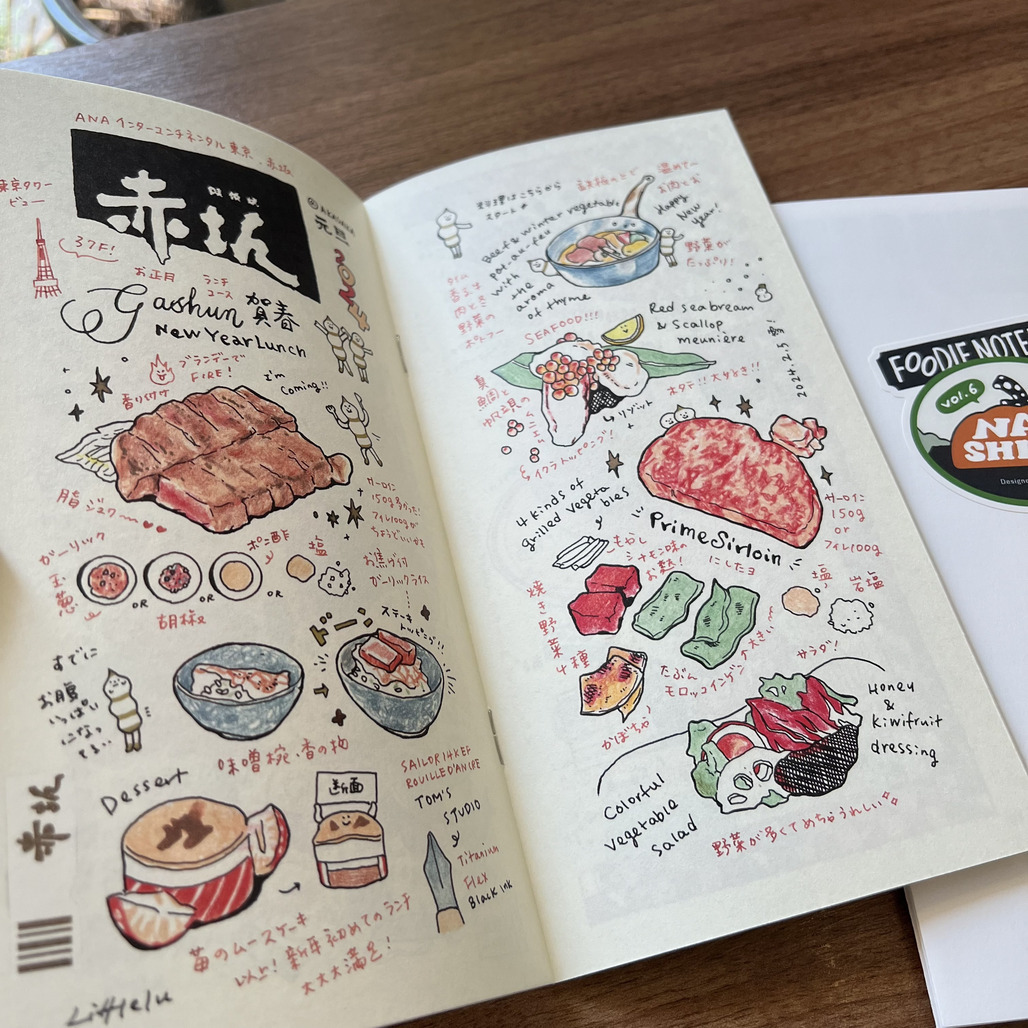 ANA インターコンチネンタル東京、赤坂
東京タワー
ビュー
37F!
赤坂
@AKASAKA
元旦
2024
お正月
ランチ
コース
Gashun 賀春
New Year Lunch
ブランデーで
FIRE!
香り付け
I'm
Coming!!
脂ジュワ〜
サーロイン
150gあったけど
フィレ100gが
ちょうどいいかも
ガーリック
玉葱
OR
OR
OR
胡椒
ポン酢
塩
お焦げ付
ガーリックライス
ステーキ
トッピング!!
ドーン
すでに
お腹
いっぱい
になっ
てる…
味噌椀、香の物
Dessert
断面
SAILOR 14K EF
ROUILLE D'ANCRE
TOM'S
STUDIO
Titanium
Flex
Black ink
苺のムースケーキ
以上! 新年初めてのランチ
大大大満足!
赤坂
Littlelu
お料理はこちらから
スタート
温めて〜
お肉とお
野菜が
たっぷり!
Happy
New
Year!
Beef & winter vegetable
pot-au-feu
with
the
aroma
of thyme
タイム
香る牛
肉と冬
野菜の
ポトフー
SEAFOOD!!!
Red seabream
& Scallop
meunière
真
鯛と
帆立貝の
ムニエル
リゾット
イクラトッピング!
ホタテ!! 大好き!!
2024.2.5
4 kinds of
grilled vegeta
bles
Prime Sirloin
サーロイン
150g
or
フィレ100g
もやし
シナモン味の
お麩!
にしたヨ
塩
岩塩
焼き野菜4種
たぶん
モロッコインゲン
大きい〜
かぼちゃ
サラダ!
Honey
&
Kiwifruit
dressing
Colorful
vegetable
salad
野菜が多くてめちゃうれしい
FOODIE NOTE
vol.6
NA
SHI
Designe